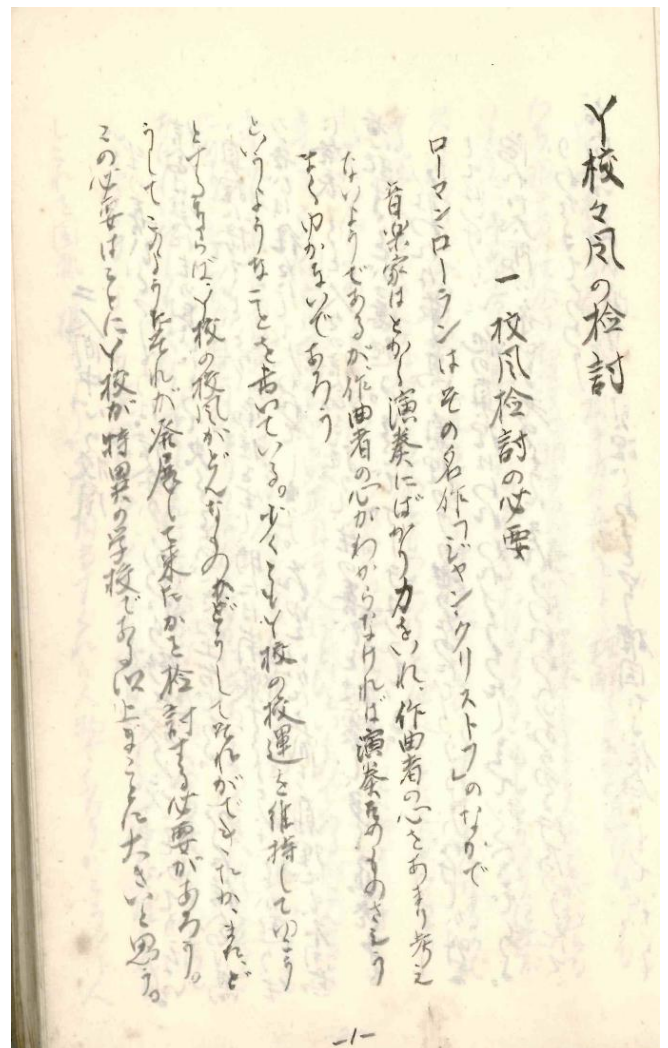 Y校々風の検討
一 校風検討の必要
ローマン・ローランはその名作「ジャン・クリストフ」のなかで
音楽家はとかく演奏にばかり力をいれ、作曲者の心をあまり考え
ないようであるが、作曲者の心がわからなければ演奏そのものさえう
まくゆかないであろう
というようなことを書いている。少くともY校の校運を維持してゆこう
とするならば、Y校の校風がどんなものかどうしてそれができたか、また、ど
うしてこのようにそれが発展して来たかを検討する必要があろう。
この必要はことにY校が特異の学校である以上まことに大きいと思う。
-1-